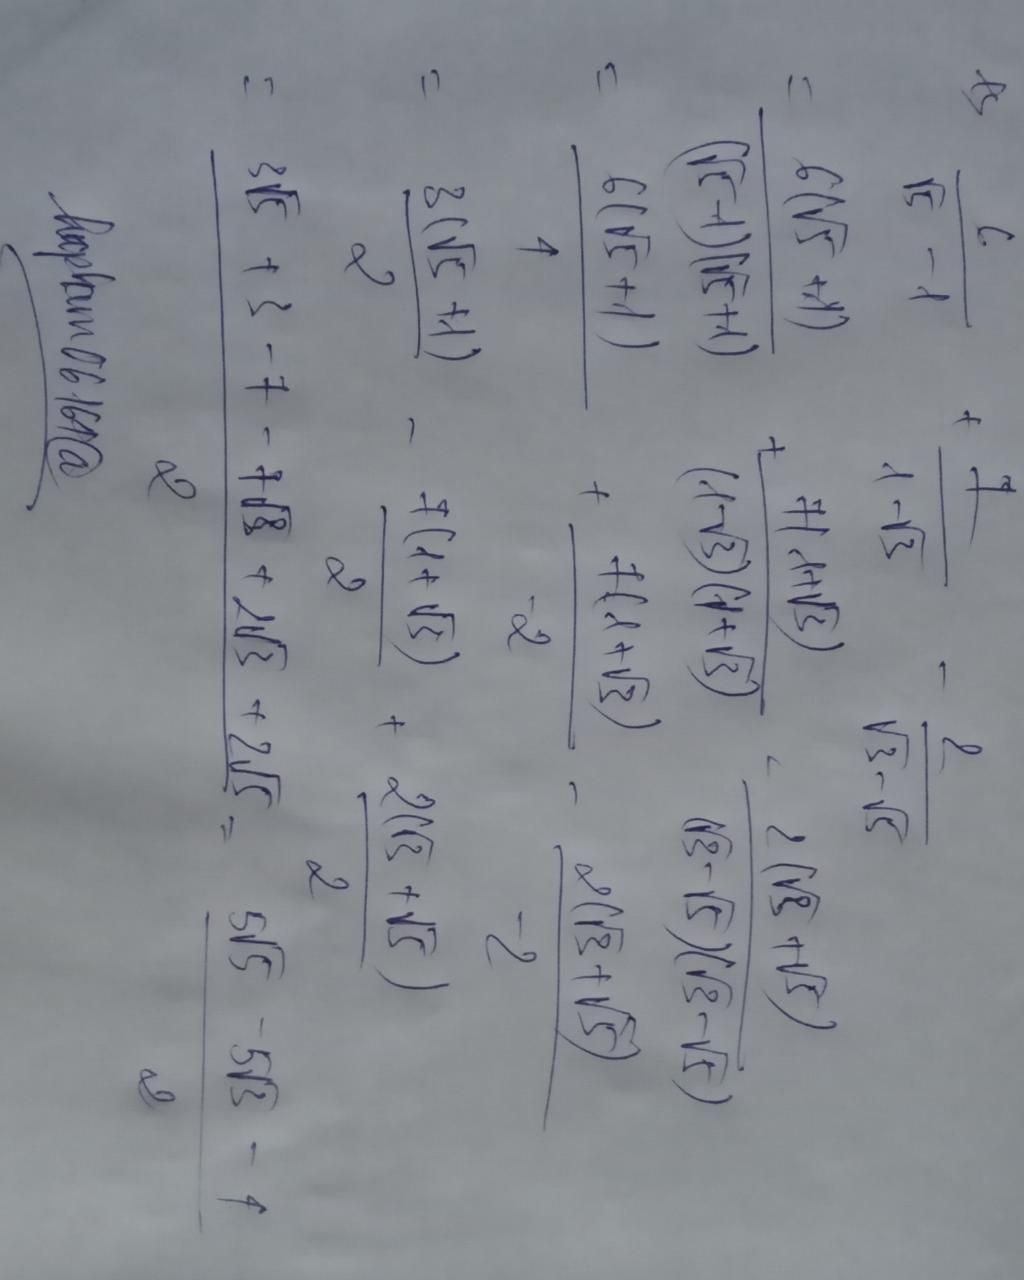 6/(√5 - 1) + 7/(1-√3) - 2/(√3-√5)
= 6(√5 +1)/((√5-1)(√5+1)) + 7(1+√3)/((1-√3)(1+√3)) - 2(√3+√5)/((√3-√5)(√3-√5))
= 6(√5+1)/4 + 7(1+√3)/-2 - 2(√3+√5)/-2
= 3(√5+1)/2 - 7(1+√3)/2 + 2(√3+√5)/2
= (3√5 + 3 - 7 - 7√3 + 2√3 + 2√5)/2 = (5√5 - 5√3 - 4)/2